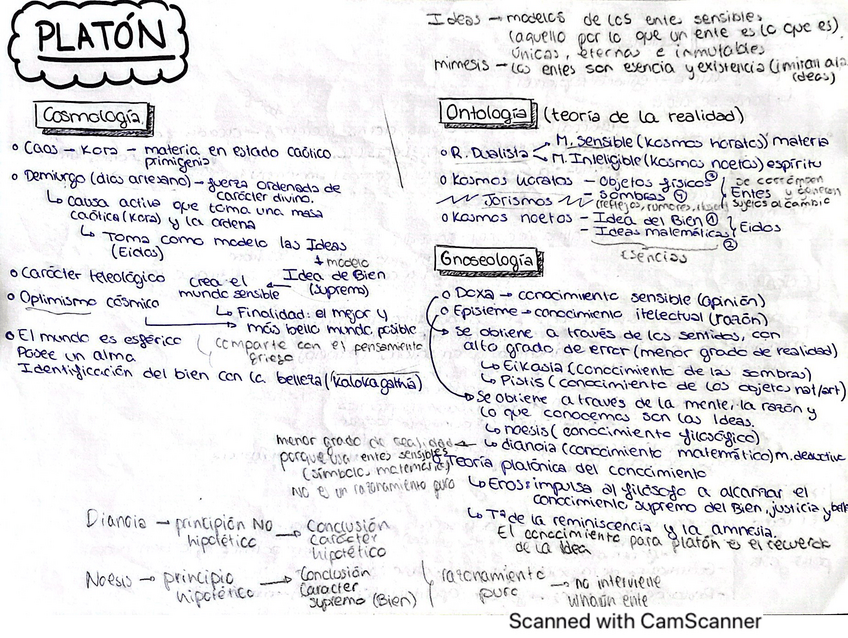 PLATÓN
Ideas → modelos de los entes sensibles
(aquello por lo que un ente es lo que es)
únicas, eternas e inmutables
mímesis → los entes son esencia y existencia (imitan a las
ideas)
Cosmología
o Caos → Kora → materia en estado caótico
primigenia
o Demiurgo (dios artesano) → fuerza ordenada de
carácter divino.
↳ causa activa que toma una masa
caótica (kora) y la ordena
↳ Toma como modelo las Ideas
(Eidos)
↓ modelo
o Carácter teleológico
crea el
mundo sensible
← Idea de Bien
(supremo)
o Optimismo cósmico
↳ Finalidad: el mejor y
más bello mundo posible
o El mundo es esférico
comparte con el pensamiento
griego
Posee un alma
Identificación del bien con la belleza (kalokagathia)
Ontología (teoría de la realidad)
o R. Dualista
M. Sensible (Kosmos horatos) materia
M. Inteligible (Kosmos noetos) espíritu
o Kosmos horatos - Objetos físicos ③
- Sombras ④
(reflejos, rumores,
Entes
se corrompen
sujetos al cambio
Jorismos
o Kosmos noetos - Idea del Bien ①
- Ideas matemáticas ②
Eidos
esencias
Gnoseología
o Doxa → conocimiento sensible (opinión)
o Episteme → conocimiento itelectual (razón)
se obtiene a través de los sentidos, con
alto grado de error (menor grado de realidad)
↳ Eikasía (conocimiento de las sombras)
↳ Pistis (conocimiento de los objetos nat/art)
Se obtiene a través de la mente, la razón y
lo que conocemos son las Ideas.
↳ noesis (conocimiento filosófico)
↳ dianoia (conocimiento matemático) m. deductivo
menor grado de realidad
porque usa entes sensibles
(símbolos matemáticos)
NO es un razonamiento puro
o Teoría platónica del conocimiento
↳ Eros: impulsa al filósofo a alcanzar el
conocimiento supremo del Bien, justicia y belle
↳ Tª de la reminiscencia y la amnesia.
El conocimiento para platón es el recuerdo
de la Idea
Dianoia → principión NO
hipotético
→ Conclusión
carácter
hipotético
Noesis → principio
hipotético
→ Conclusión
Carácter
supremo (Bien)
razonamiento
puro
→ no interviene
ente
Scanned with CamScanner